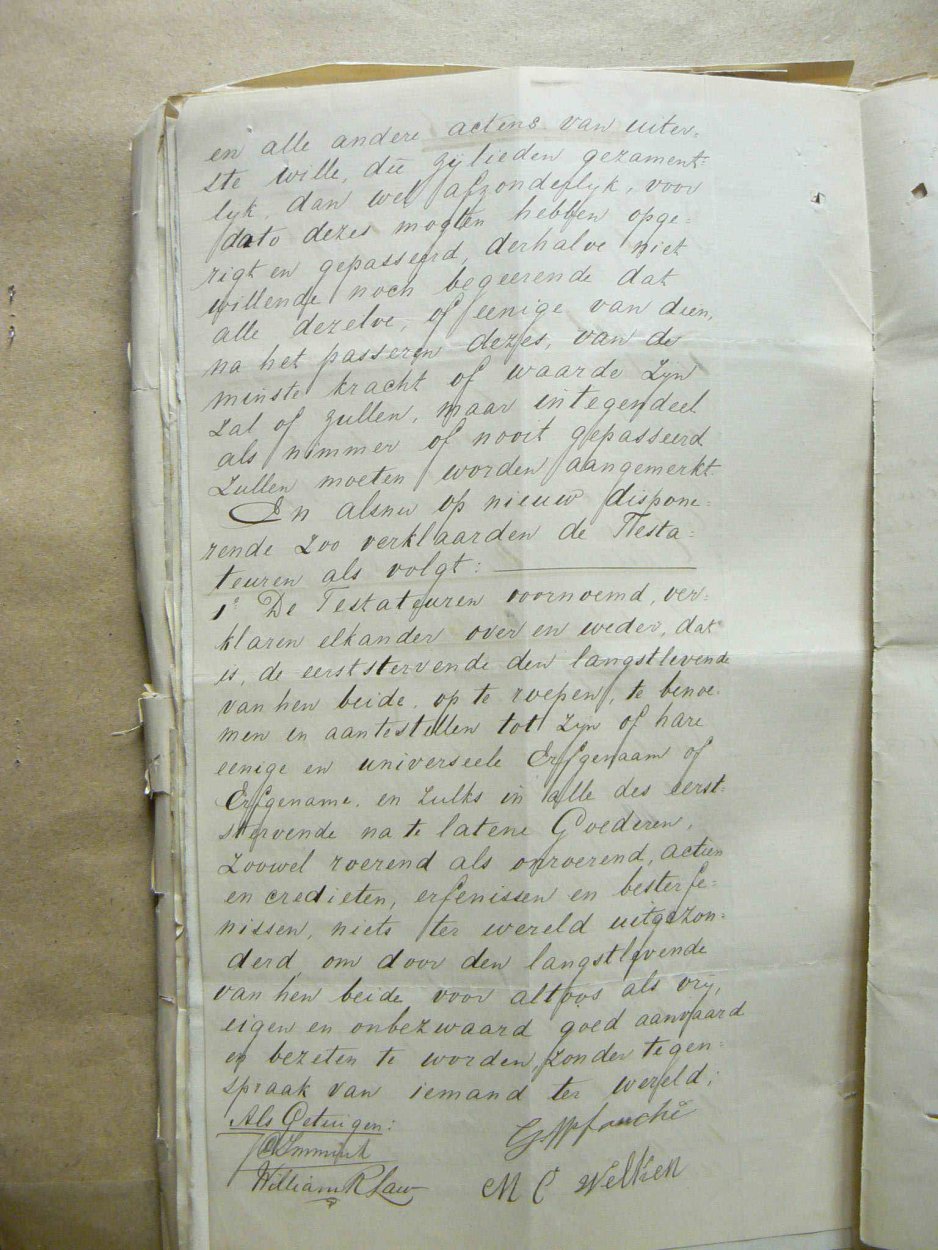 en alle andere actens van uiter-
ste wille, die zylieden gezament-
lyk, dan wel afzonderlyk, voor
dato dezes mogten hebben opge=
rigt en gepasseerd, derhalve niet
willende noch begeerende dat
alle dezelve, of eenige van dien,
na het passeren dezes, van de
minste kracht of waarde zyn
zal of zullen, maar integendeel
als nimmer of nooit gepasseerd
zullen moeten worden aangemerkt
En alsnu op nieuw dispone=
rende zoo verklaarden de Testa=
teuren als volgt:
1° De Testateuren voornoemd, ver=
klaren elkander over en weder, dat
is, de eerststervende den langstlevende
van hen beide, op te roepen, te benoe=
men en aantestellen tot zyn of hare
eenige en universeele Erfgenaam of
Erfgename, en zulks in alle des eerst-
stervende na te latene Goederen,
zoowel roerend als onroerend, actien
en credieten, erfenissen en besterfe=
nissen, niets ter wereld uitgezon=
derd, om door den langstlevende
van hen beide voor altoos als vrij,
eigen en onbezwaard goed aanvaard
en bezeten te worden, zonder tegen=
spraak van iemand ter wereld;
Als Getuigen:
fouché
William R Law
M C Welken